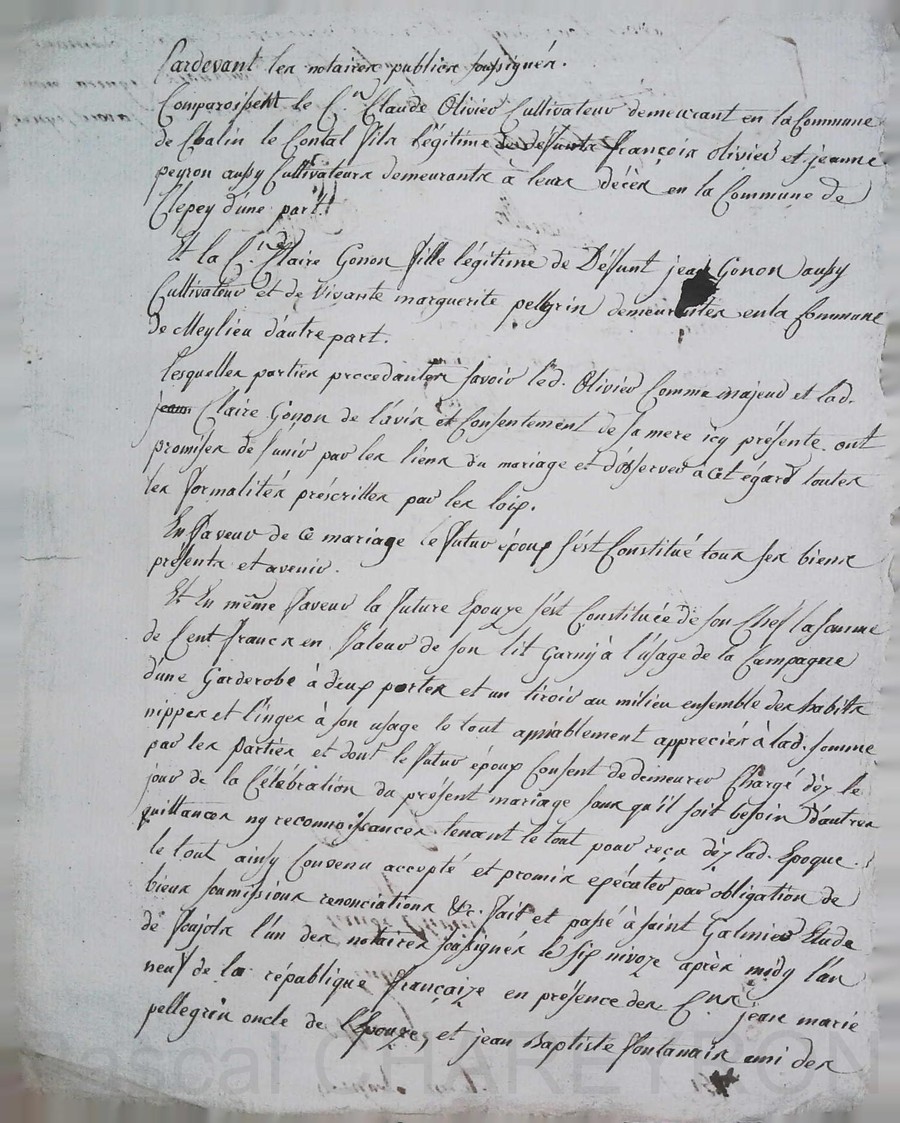 Pardevant les notaires publics soussignés.
Comparoissent le C.en Claude Olivier Cultivateur demeurant en la Commune
de Chalin le Contal fils légitime de défunts françois olivier et jeanne
peyron aussy Cultivateurs demeurants à leurs décès en la Commune de
Clepey d'une part.
Et la C.ne Claire Gonon fille légitime de Défunt jean Gonon aussy
Cultivateur et de vivante marguerite pellgrin demeurantes en la Commune
de Meylieu d'autre part.
Lesquelles parties procedantes savoir led. Olivier Comme majeur et lad.
jean Claire Gonon de l'avis et Consentement de sa mere icy présente ont
promises de s'unir par les liens du mariage et d'observer à cet égard toutes
les formalités préscrittes par les loix.
En faveur de ce mariage le futur époux s'est Constitué tous ses biens
présents et avenir.
Et En même faveur la future Epouze s'est Constituée de son Chef la somme
de Cent francs en valeur de son lit garny à l'usage de la Campagne
d'une Garderobe à deux portes et un tiroir au milieu ensemble des habits
nippes et linges à son usage le tout amiablement appreciés à lad. somme
par les parties et dont le futur époux Consent de demeurer Chargé dèz le
jour de la Célébration du présent mariage sans qu'il soit besoin d'autres
quittances ny reconnoissances tenant le tout pour reçu dèz lad. Epoque.
le tout ainsy Convenu accepté et promis exécuter par obligation de
biens soumissions renonciations &c. fait et passé à saint Galmier Etude
de foujols l'un des notaires soussignés le six nivoze après midy l'an
neuf de la république françaize en présence des C.ens jean marie
pellegrin oncle de l'épouze, et jean Baptiste fontanais ami des
Pascal CHAREYRON